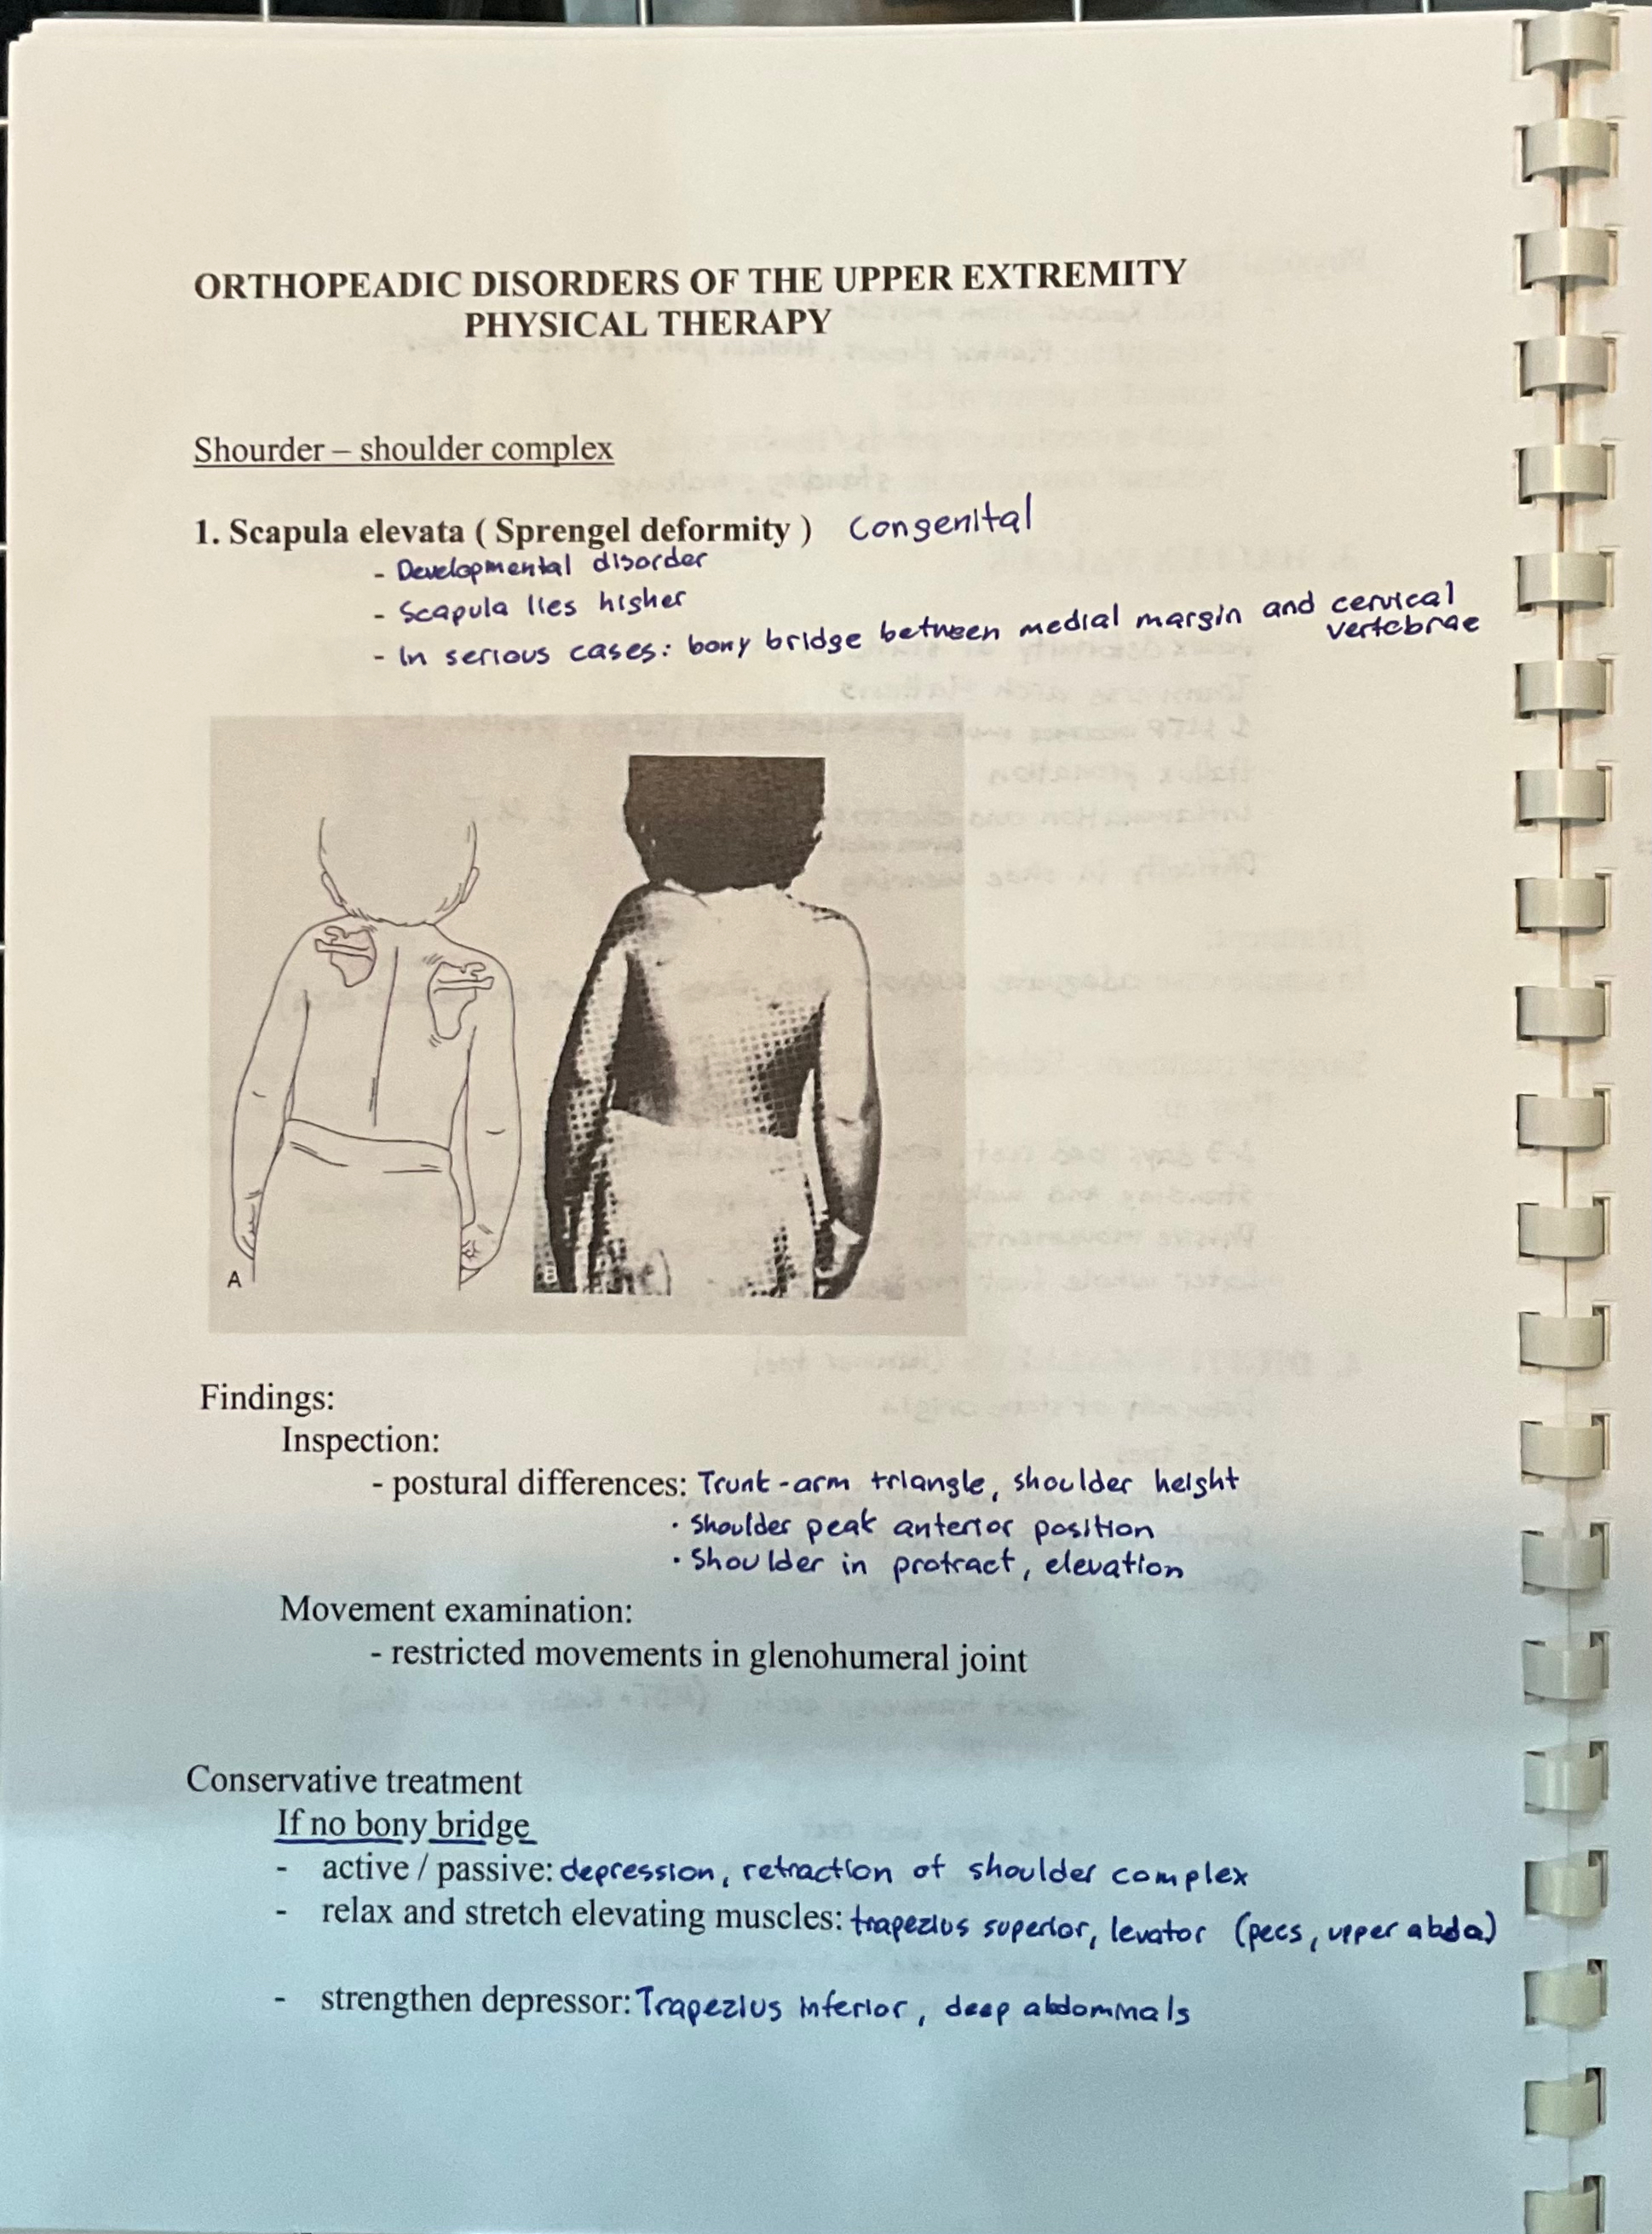 ORTHOPEADIC DISORDERS OF THE UPPER EXTREMITY
PHYSICAL THERAPY
Shourder – shoulder complex
1. Scapula elevata ( Sprengel deformity ) Congenital
- Developmental disorder
- Scapula lies higher
- In serious cases: bony bridge between medial margin and cervical
vertebrae
A
B
Findings:
Inspection:
- postural differences: Trunk-arm triangle, shoulder height
• Shoulder peak anterior position
• Shoulder in protract, elevation
Movement examination:
- restricted movements in glenohumeral joint
Conservative treatment
If no bony bridge
- active / passive: depression, retraction of shoulder complex
- relax and stretch elevating muscles: trapezius superior, levator (pecs, upper abdo)
- strengthen depressor: Trapezius inferior, deep abdominals